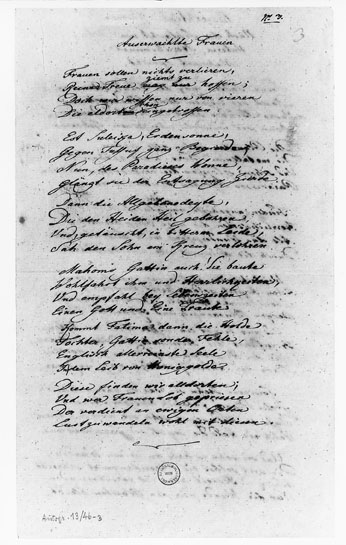 No. 7.
3
Auserwaehlte Frauen
Frauen sollen nichts verlieren,
ziemt zu
Reiner Treue hoffen;
Doch wir wissen nur von vieren
Die alldort eingetroffen.
Erst Suleiga, Erdensonne,
Gegen Jussuf ganz Begierde,
Nun, des Paradieses Wonne
Glänzt sie der Entsagung Zierde.
Dann die Allgebenedeyte,
Die den Heiden Heil gebohren
Und getäuscht, in Leide,
Sah den Sohn am Kreuz verlohren
Mahoms Gattin auch! Sie baute
Wohlfahrt ihm und Herrlichkeiten,
Und empfahl bey Lebenszeiten
Einen Gott und Eine Traute
Kommt Fatima dann, die Holde
Tochter, Gattin sonder Fehle,
Englisch allerreinste Seele
In dem Leib von Honiggolde.
Diese finden wir alldorten;
Und wer Frauen Lob gepriesen
Der verdient an ewigen Orten
Lustzuwandeln wohl mit diesen.
Autogr. 13/46-3